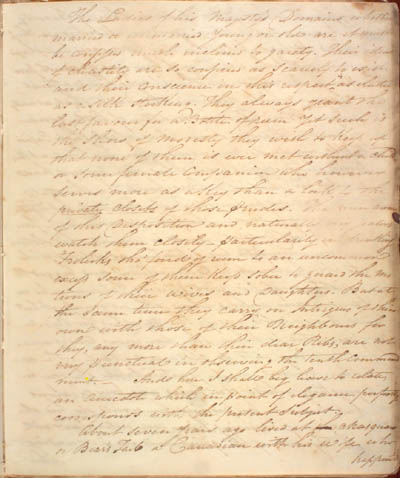 The Ladies of his Majestys Domains, whether
married or unmarried Young or old are it must
be confess'd much inclin'd to gaiety. Their ideas
of chastity are so confin'd as scarcely to exist
and their conscience in this respect as elastic
as a Silk Stocking. They always grant the
last favour for a Bottle of rum. Yet such is
the Shew of Modesty they wish to keep up
that none of them is ever met without a child
or some female Companion who however
serves more as a key than a lock to the
private closets of these prudes. The men aware
of this Disposition and naturally
watch them closely particularly in drinking
Frolicks tho' fond of rum to an uncommon
excess some of them keep sober to guard the mo
tions of their wives and Daughters. But at
the same time they carry on Intrigues of their
own with those of their Neighbours for
they, any more than their dear Ribs, are not
very punctual in observing the tenth command
ment. And here I shall beg leave to relate
an anecdote which in point of elegance perfectly
corresponds with the present subject.
About seven Years ago lived at
or Bears Fort a Canadian with his wife who
happen'd